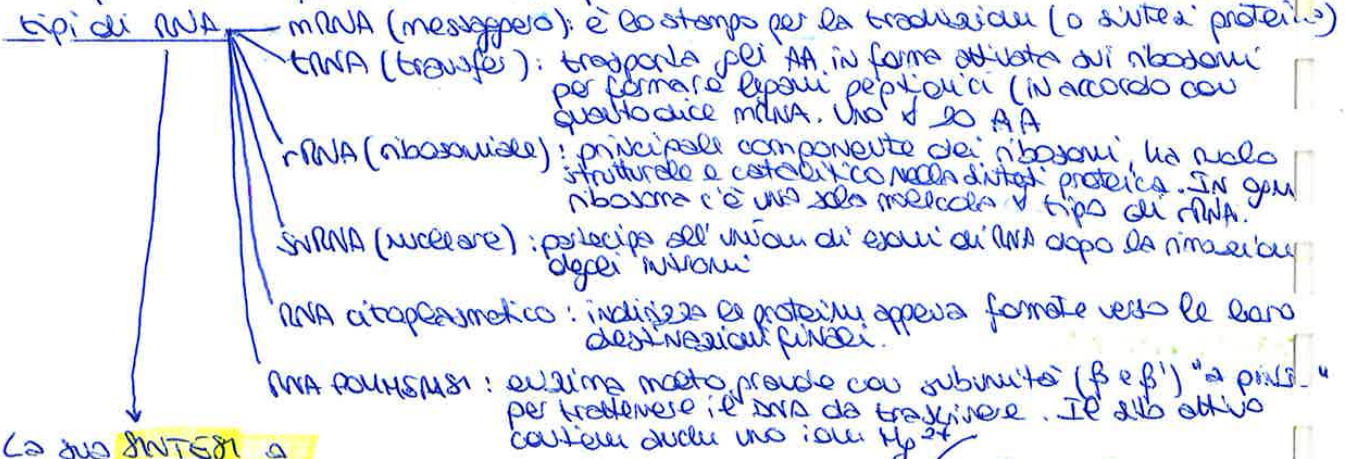 tipi di RNA
mRNA (messaggero): è lo stampo per la traduzione (o sintesi proteica)
tRNA (transfer): trasporta gli AA in forma attivata sui ribosomi
per formare legami peptidici (in accordo con
quanto dice mRNA. Uno ∀ 20 AA
rRNA (ribosomiale): principale componente dei ribosomi, ha ruolo
strutturale e catalitico nella sintesi proteica. IN ogni
ribosoma c'è una sola molecola ∀ tipo di rRNA.
snRNA (nucleare): partecipa all'unione di esoni di RNA dopo la rimozione
degli introni
RNA citoplasmatico: indirizza le proteine appena formate verso le loro
destinazioni finali.
RNA POLIMERASI: enzima molto grande con subunità (β e β') "a pinza"
per trattenere il DNA da trascrivere. Il sito attivo
contiene anche uno ione Mg2+
La sua SINTESI a